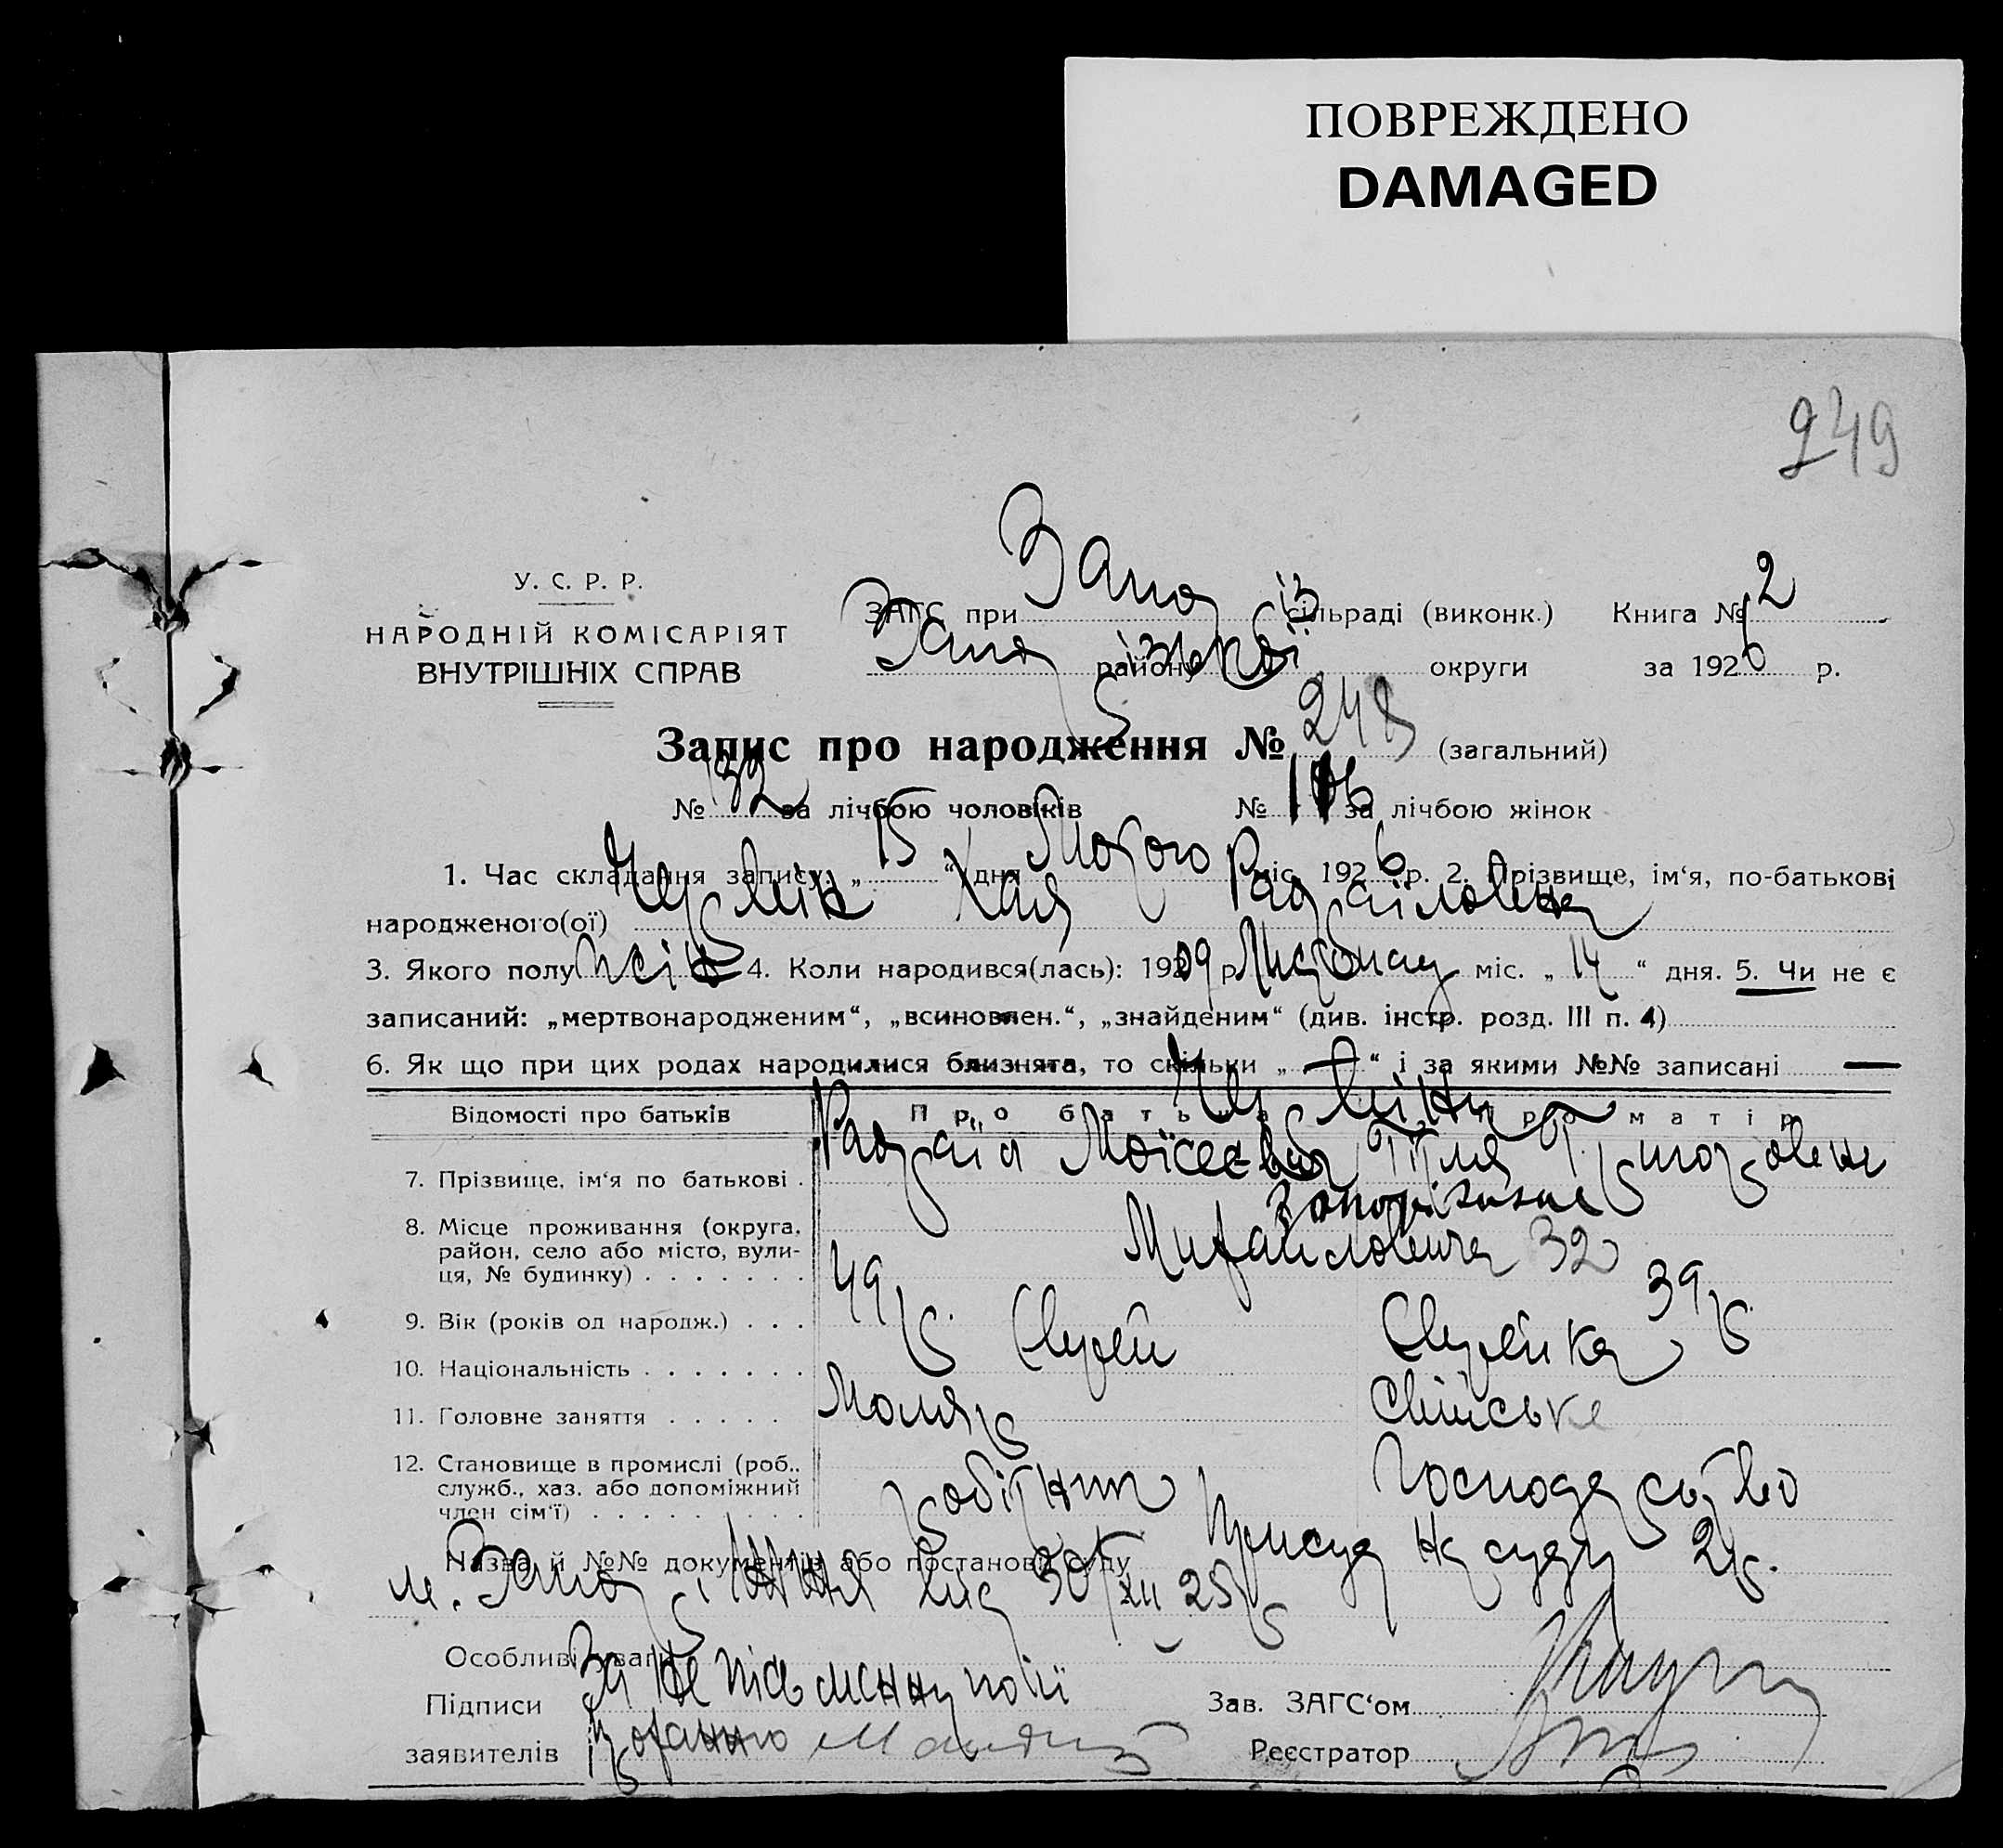 ПОВРЕЖДЕНО
DAMAGED
249
У. С. Р. Р.
НАРОДНІЙ КОМІСАРІЯТ
ВНУТРІШНІХ СПРАВ
ЗАГС при сільраді (виконк.) Книга № 2
району округи за 1926 р.
Запис про народження № 249 (загальний)
№ 132 за лічбою чоловіків № за лічбою жінок
1. Час складання запису: „ 15 “ дня Лютого міс. 1926 р. 2. Прізвище, ім‘я, по-батькові
народженого(ої) Хая Рафаіловна
3. Якого полу жін 4. Коли народився(лась): 1909 р. міс. „ 14 “ дня. 5. Чи не є
записаний: „мертвонародженим“, „всиновлен.“, „знайденим“ (див. інстр. розд. III п. 4)
6. Як що при цих родах народилися близнята, то скільки „ — “ і за якими №№ записані —
Відомості про батьків Про батька Про матір
7. Прізвище, ім‘я по батькові . Рафаіл Моісеєвич
8. Місце проживання (округа, район, село або місто, вулиця, № будинку) . . . . . . . Запоріжжя
Михайловича 32
9. Вік (років од народж.) . . . 49 р. 39 р.
10. Національність . . . . . . . Єврей Єврейка
11. Головне заняття . . . . . Маляр Свійське
12. Становище в промислі (роб., служб., хаз. або допоміжний член сім‘ї) . . . . . . . . . робітник Господарство
Назва й №№ документів або постанови суду Присуд Нарсуду 2 р.
м. Запоріжжя від 30/XII 25 р
Особливі уваги
Підписи За неписьменну по її Зав. ЗАГС‘ом
заявителів проханню Реєстратор